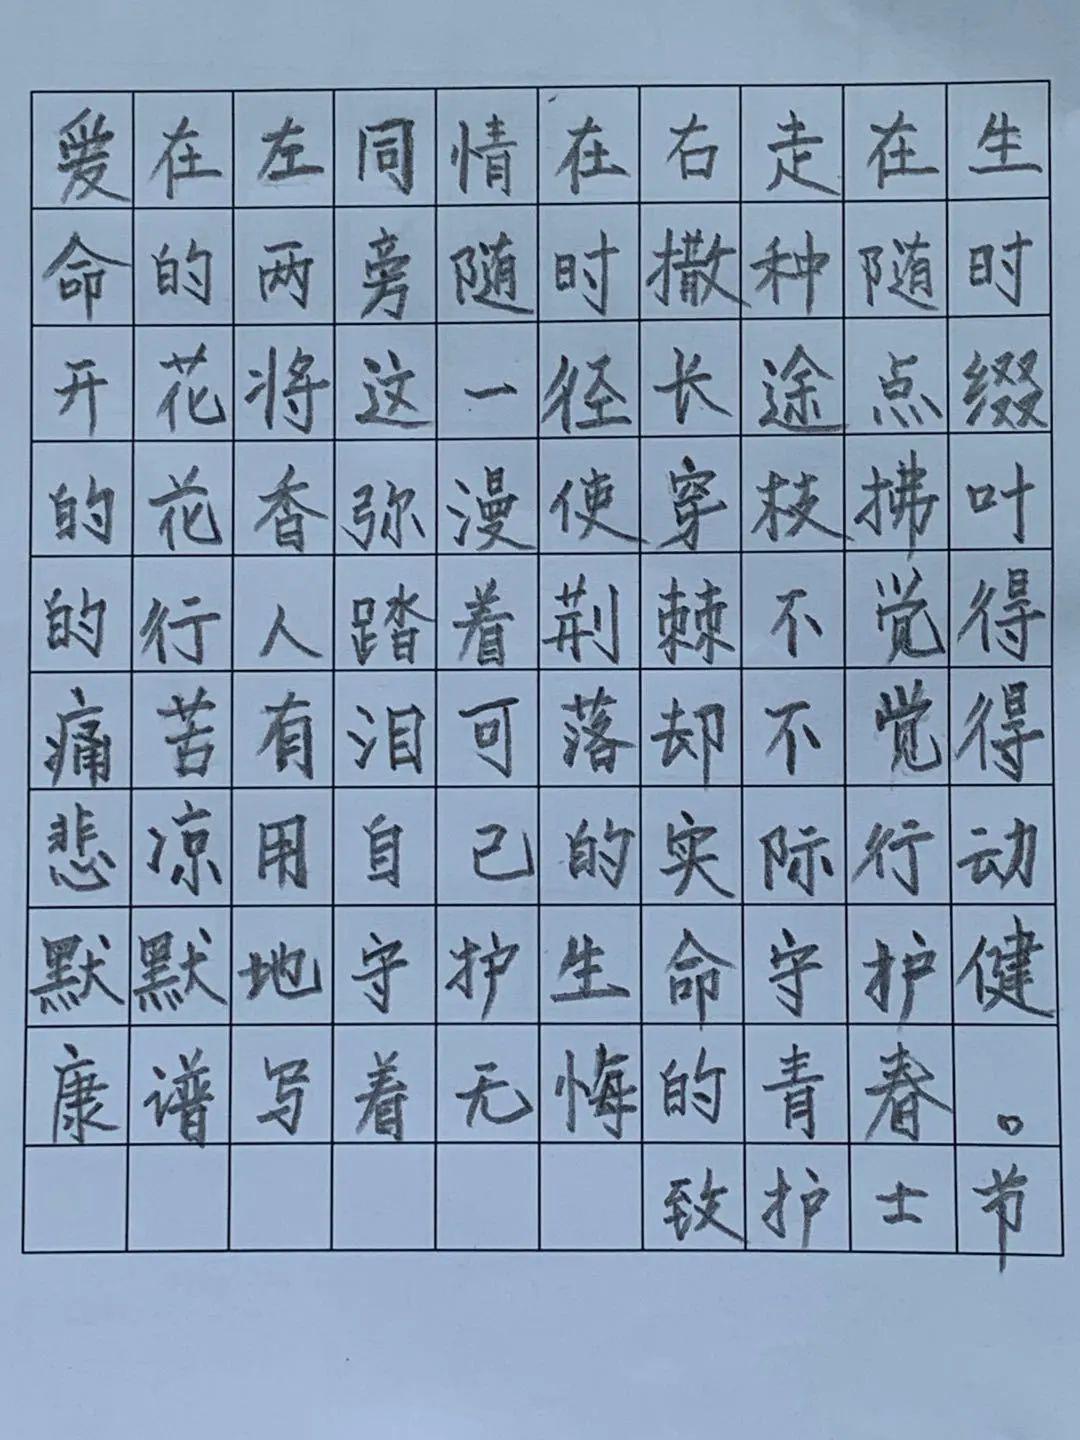 爱在左同情在右走在生
命的两旁随时撒种随时
开花将这一径长途点缀
的花香弥漫使穿枝拂叶
的行人踏着荆棘不觉得
痛苦有泪可落却不觉得
悲凉用自己的实际行动
默默地守护生命守护健
康谱写着无悔的青春。
致护士节